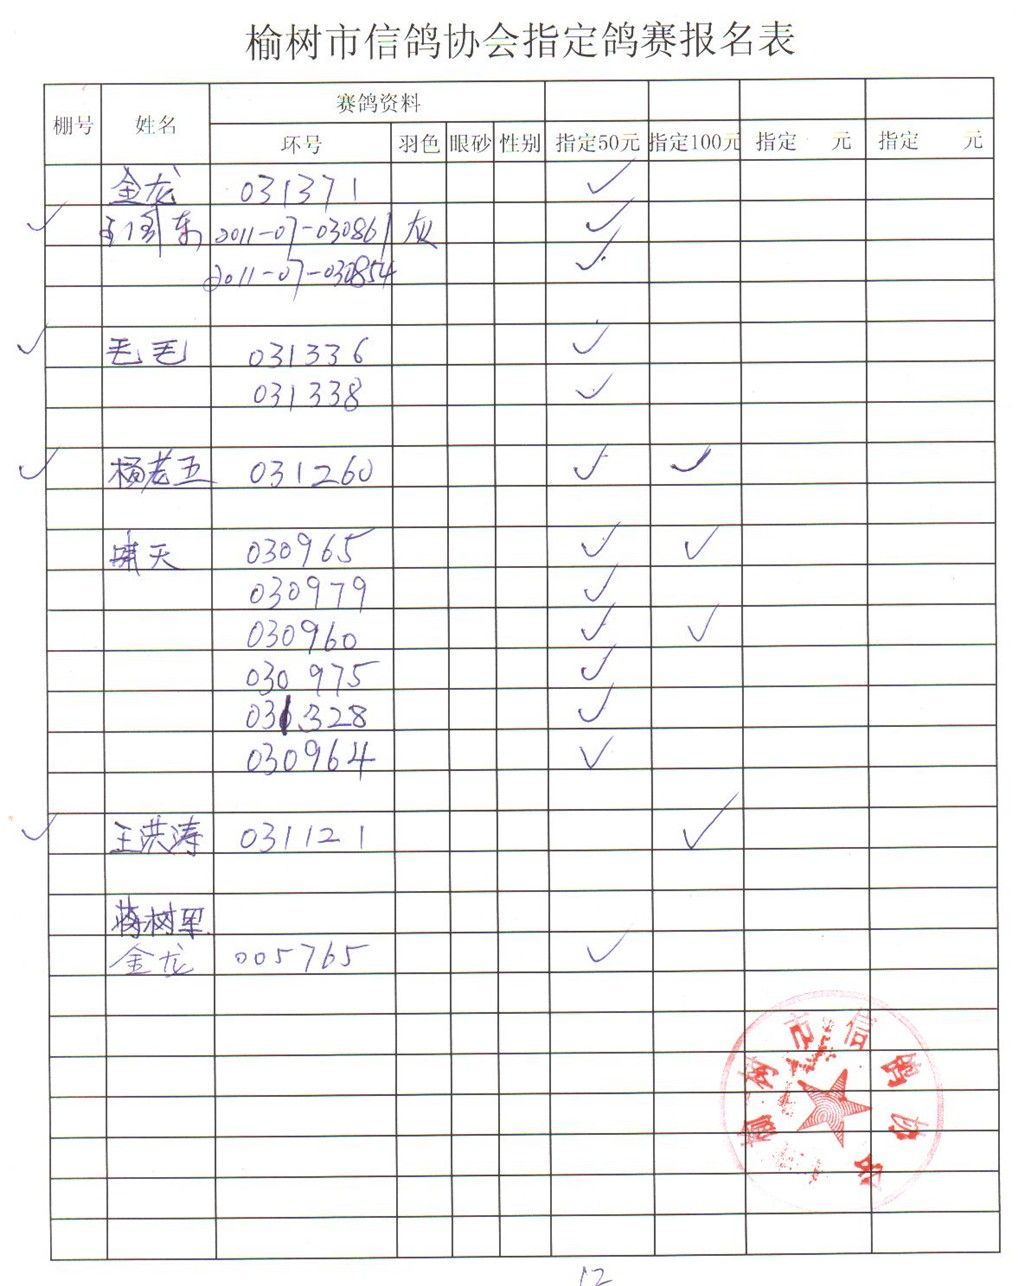 榆树市信鸽协会指定鸽赛报名表
棚号 姓名 赛鸽资料
环号 羽色 眼砂 性别 指定50元 指定100元 指定 元 指定 元
金龙 031371 ✓
✓ 2011-07-030861 灰 ✓
2011-07-030854 ✓
✓ 毛毛 031336 ✓
031338 ✓
✓ 杨老五 031260 ✓ ✓
啸天 030965 ✓ ✓
030979 ✓
030960 ✓ ✓
030975 ✓
031328 ✓
030964 ✓
✓ 王洪涛 031121 ✓
金龙 005765 ✓
榆树市信鸽协会
12